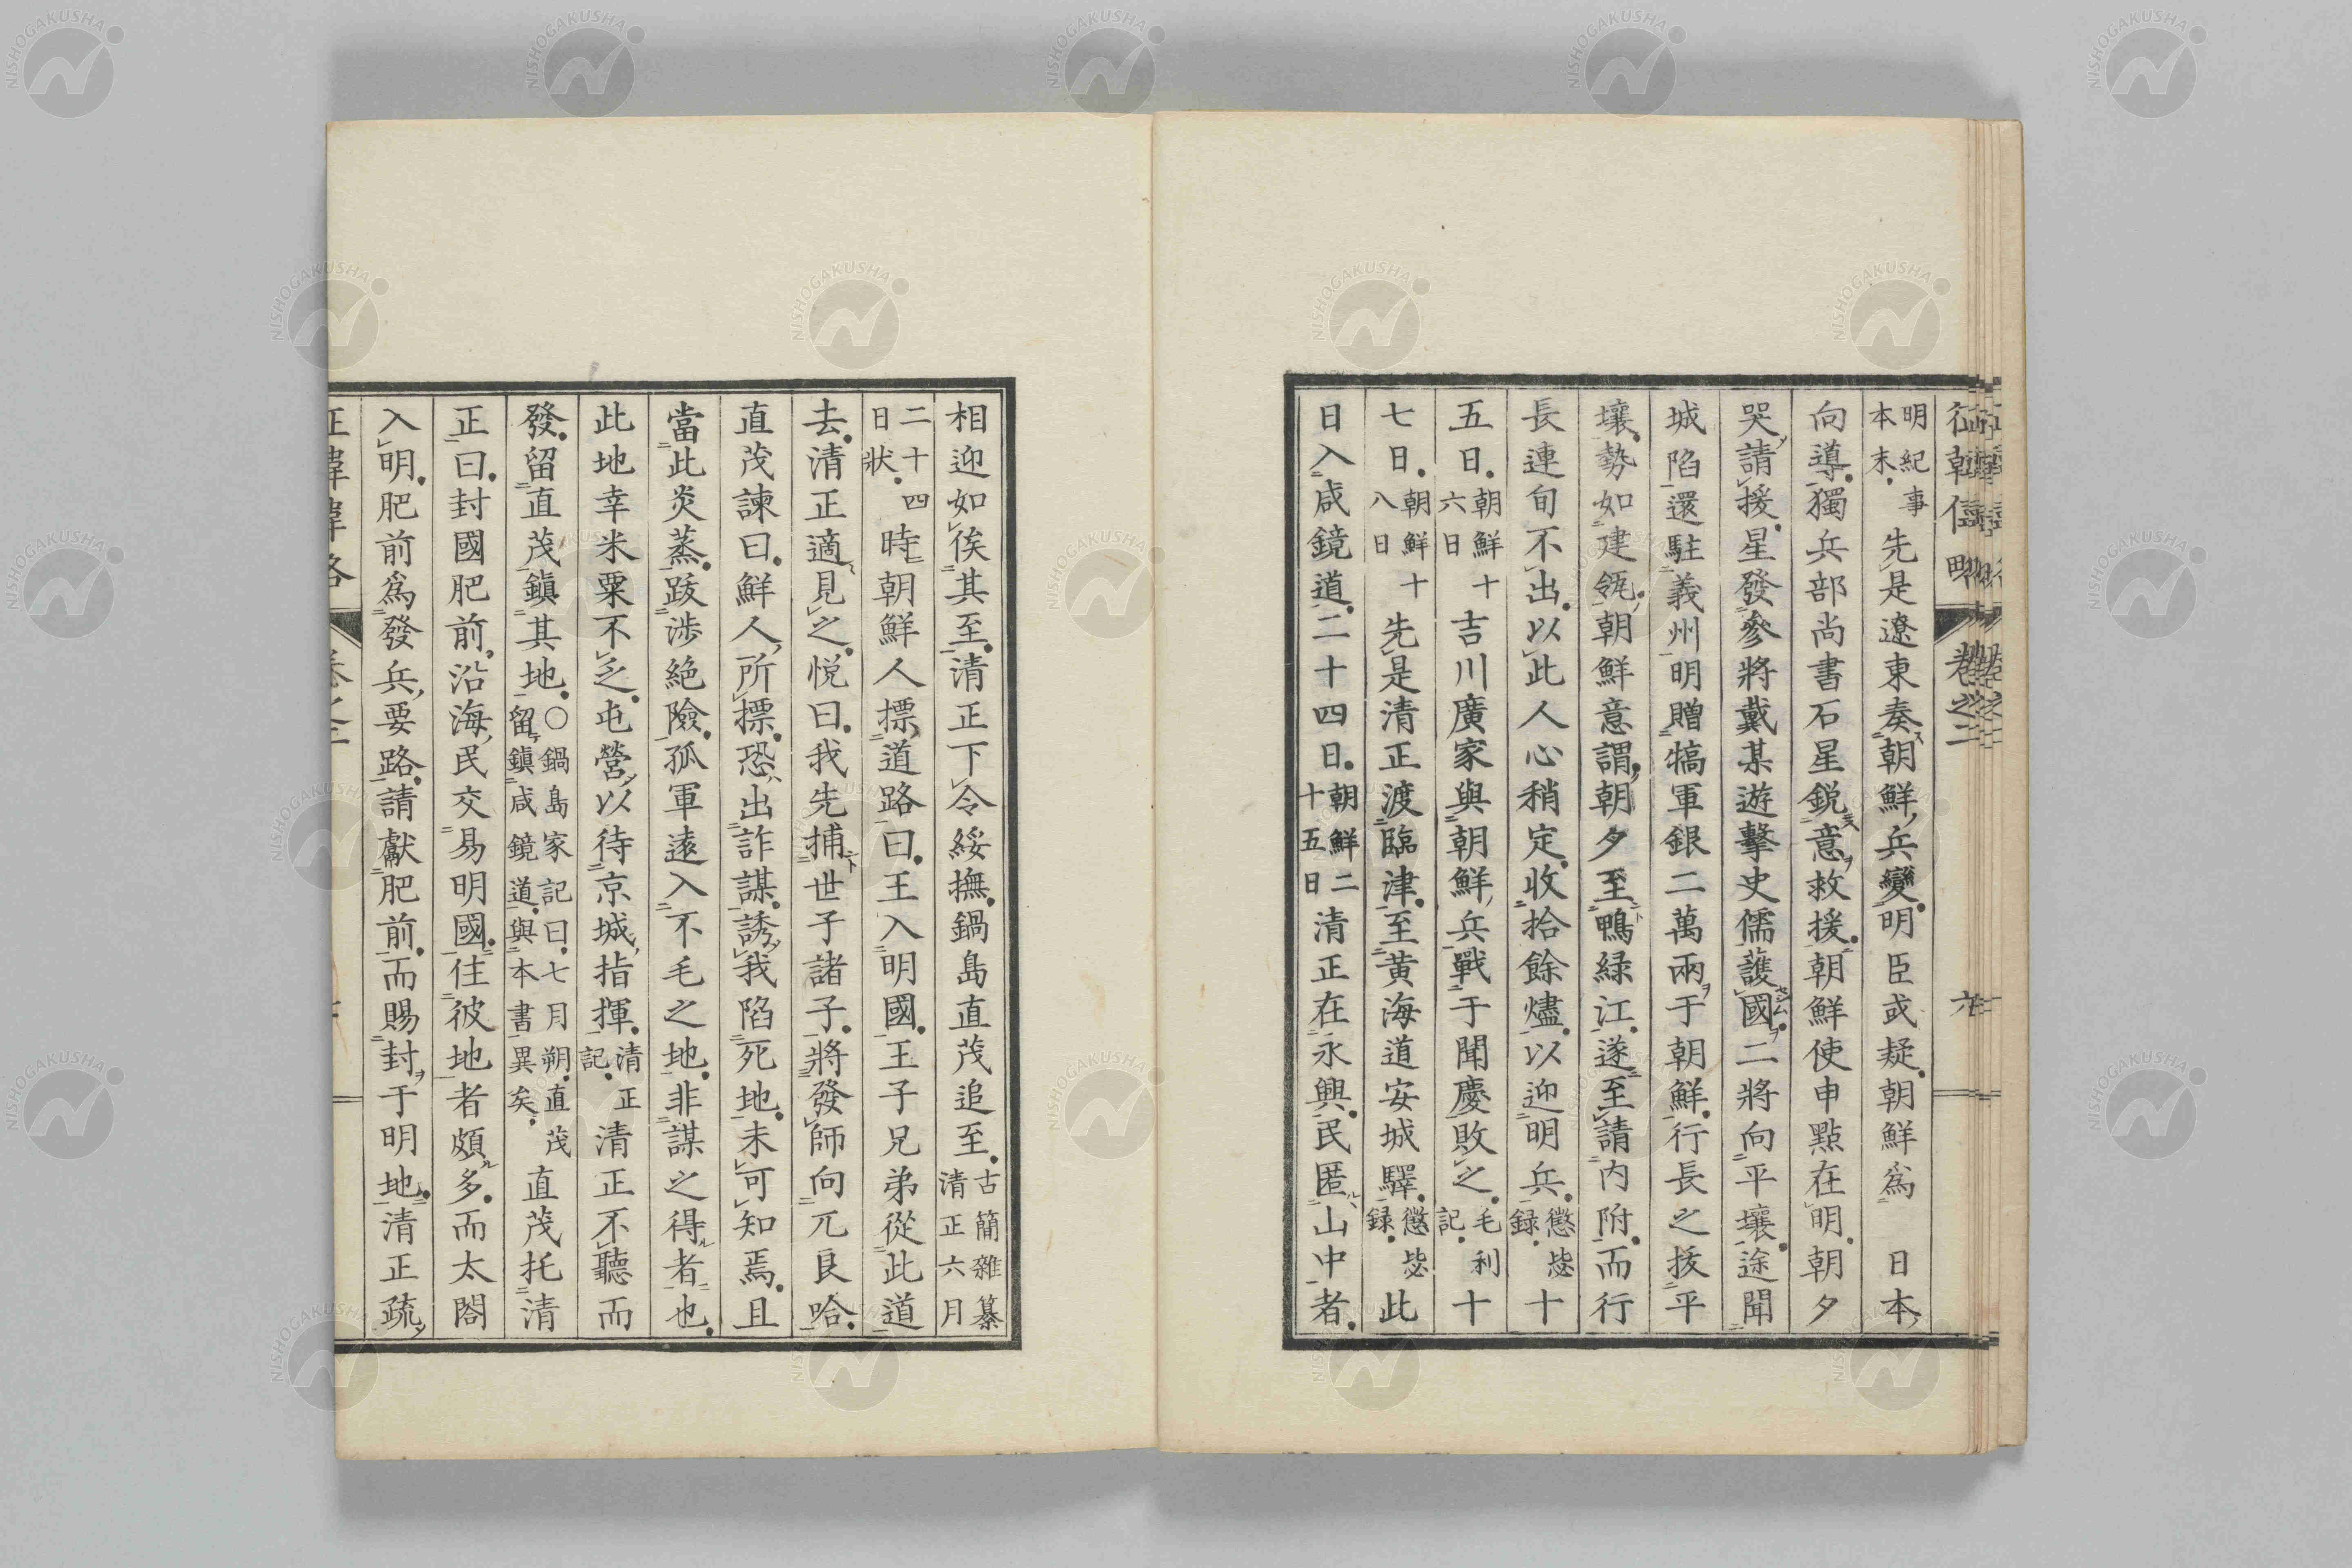 明紀事本末先是遼東奏朝鮮兵變明臣或疑朝鮮爲日本
向導獨兵部尚書石星鋭意救援朝鮮使申點在明朝夕
哭請援星發參將戴某遊擊史儒護國二將向平壤途聞
城陷還駐義州明贈犒軍銀二萬兩于朝鮮行長之拔平
壤勢如建瓴朝鮮意謂朝夕至鴨緑江遂至請内附而行
長連旬不出以此人心稍定收拾餘燼以迎明兵懲毖録十
五日朝鮮十六日吉川廣家與朝鮮兵戰于聞慶敗之毛利記十
七日朝鮮十八日先是清正渡臨津至黄海道安城驛懲毖録此
日入咸鏡道二十四日朝鮮二十五日清正在永興民匿山中者
相迎如俟其至清正下令綏撫鍋島直茂追至古簡雜纂清正六月
二十四日狀時朝鮮人標道路曰王入明國王子兄弟從此道
去清正適見之悦曰我先捕世子諸子將發師向兀良哈
直茂諫曰鮮人所標恐出詐謀誘我陷死地未可知焉且
當此炎蒸跋涉絶險孤軍遠入不毛之地非謀之得者也
此地幸米粟不乏屯營以待京城指揮清正記清正不聽而
發留直茂鎭其地〇鍋島家記曰七月朔直茂留鎭咸鏡道與本書異矣直茂托清
正曰封國肥前沿海民交易明國住彼地者頗多而太閤
入明肥前爲發兵要路請獻肥前而賜封于明地清正疏
卷之二
六
NISHOGAKUSHA